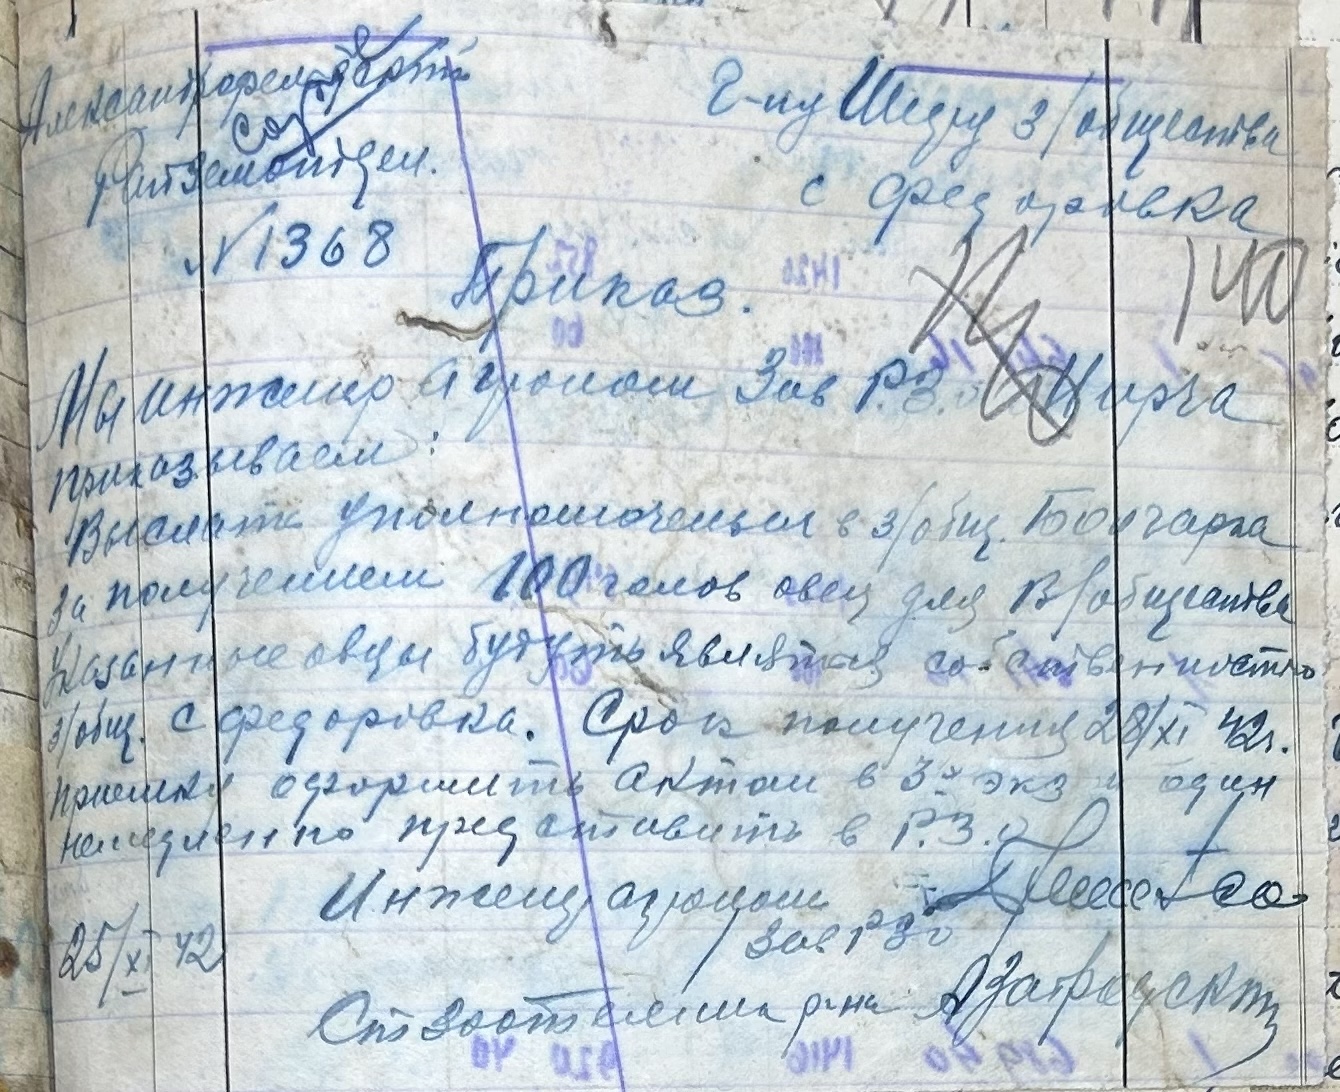 Александрфельдский
Райземотдел.
№ 1368
Г-ну Шецу з/общества
с федоровка
140
Приказ.
Мы инженер Агроном Зав Р.З.о Кирча
приказываем:
Выслать уполномоченых в з/общ.
за получением 100 голов овец для В/общества
Указанные овцы будуть являтся собственностю
з/общ. с федоровка. Срок получения 28/XI 42г.
приемку оформить актом в 3х экз и один
немедленно представить в Р.З.о
Инжен агроном
Зав РЗо
25/XI 42
Ст зоотехник р-на